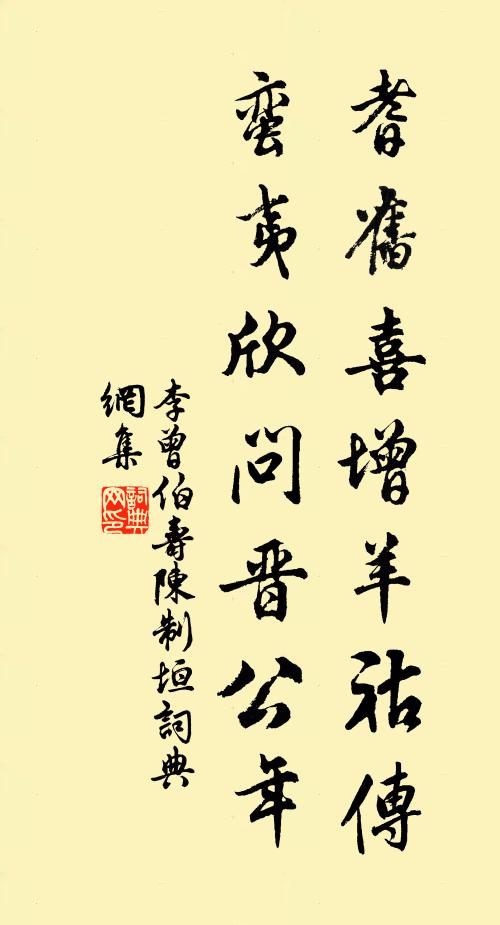 耆舊喜增羊祜傳
蛮夷欣問晋公年
李曾伯壽陳制垣詞典
網集
詞典
网印